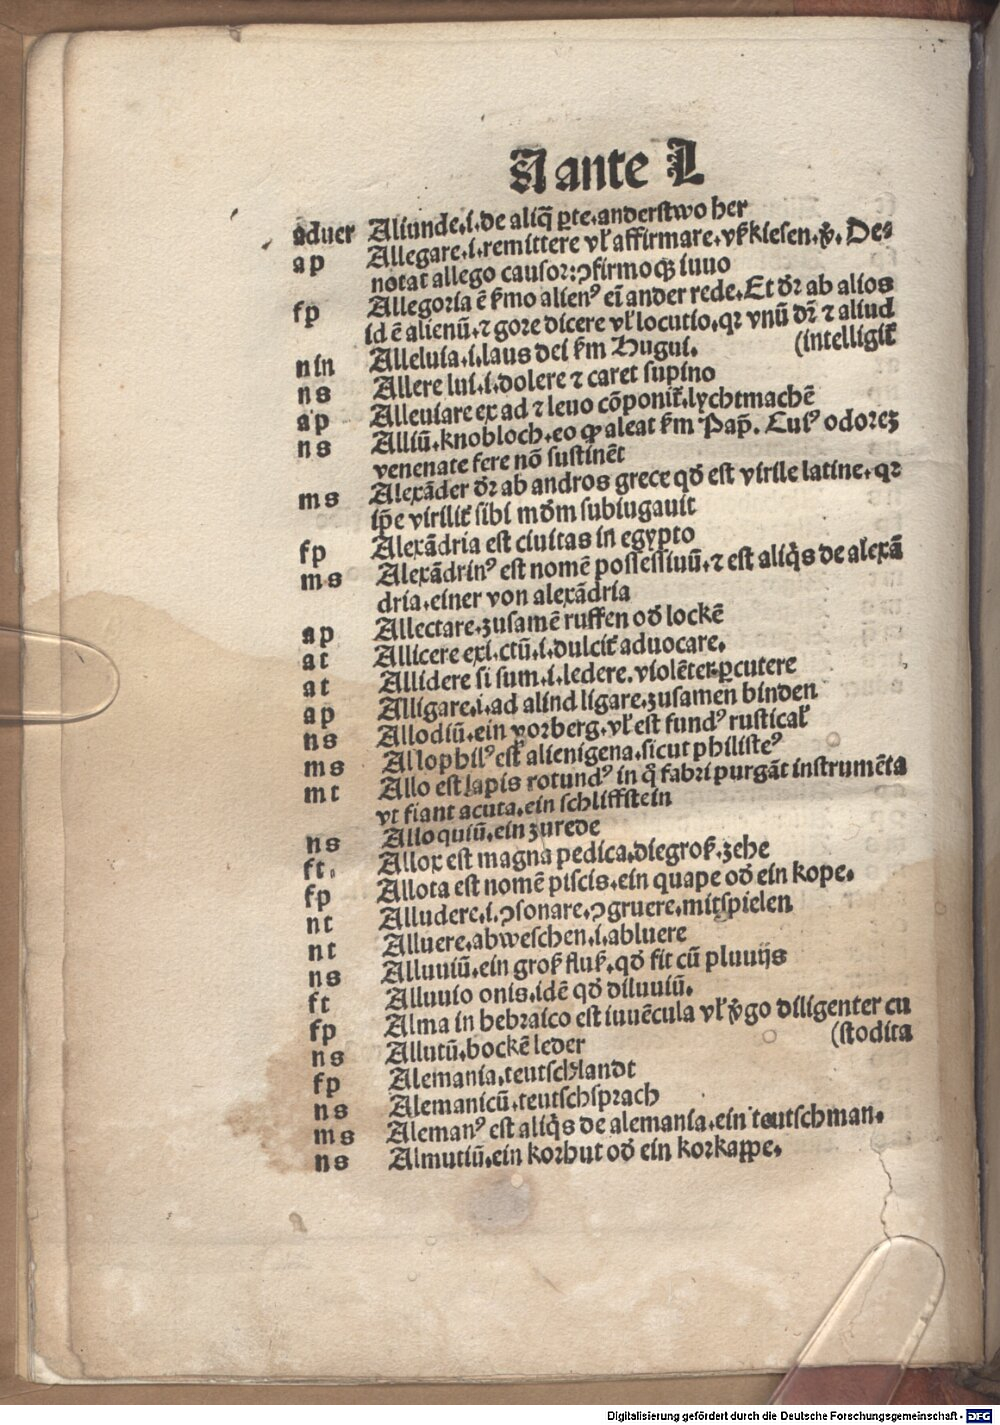 A ante L
aduer Aliunde.i.de aliq̃ ꝑte.anderstwo her
ap Allegare.i.remittere vl̓ affirmare.vk̓kiesen.ꝟ. De⸗
notat allego causor: ꝯfirmoqꝫ iuuo
fp Allegoria ē k̓mo alien⁹ ei̅ ander rede. Et dr̄ ab alios
id ē alienū.⁊ gore dicere vl̓ locutio.qꝛ vnū dr̄ ⁊ aliud
nin Alleluia.i.laus dei k̓m Hugui. (intelligit̓
ns Allere lui.i.dolere ⁊ caret supino
ap Alleuiare ex ad ⁊ leuo cōponit̓.lychtmachē
ns Alliū.knobloch.eo ꝙ aleat k̓m Pap̄. Cui⁹ odorez
venenate fere nō sustinēt
ms Alexāder dr̄ ab andros grece qd̓ est virile latine.qꝛ
ip̄e virilit̓ sibi md̓m subiugauit
fp Alexādria est ciuitas in egypto
ms Alexādrin⁹ est nomē possessiuū.⁊ est aliq̓s de alexā
dria.einer von alexādria
ap Allectare.zusamē ruffen od̓ lockē
at Allicere exi.ctū.i.dulcit̓ aduocare.
at Allidere si sum.i.ledere.violēter ꝑcutere
ap Alligare.i.ad aliud ligare.zusamen binden
ns Allodiū.ein vorberg.vl̓ est fund⁹ rustical̓
ms Allophil⁹ est alienigena.sicut philiste⁹
mt Allo est lapis rotund⁹ in q̊ fabri purgāt instrumēta
vt fiant acuta.ein schliffstein
ns Alloquiū.ein zurede
ft. Allox est magna pedica.diegroß.zehe
fp Allota est nomē piscis.ein quape od̓ ein kope.
nt Alludere.i.ꝯsonare.ꝯgruere.mitspielen
nt Alluere.abweschen.i.abluere
ns Alluuiū.ein groß fluß.qd̓ fit cū pluuijs
ft Alluuio onis.idē qd̓ diluuiū.
fp Alma in hebraico est iuuēcula vl̓ ꝟgo diligenter cu
ns Allutū.bockē leder (stodita
fp Alemania.teutschlandt
ns Alemanicū.teutschsprach
ms Aleman⁹ est aliq̓s de alemania.ein teutschman.
ns Almutiū.ein korhut od̓ ein korkappe.
Digitalisierung gefördert durch die Deutsche Forschungsgemeinschaft - DFG